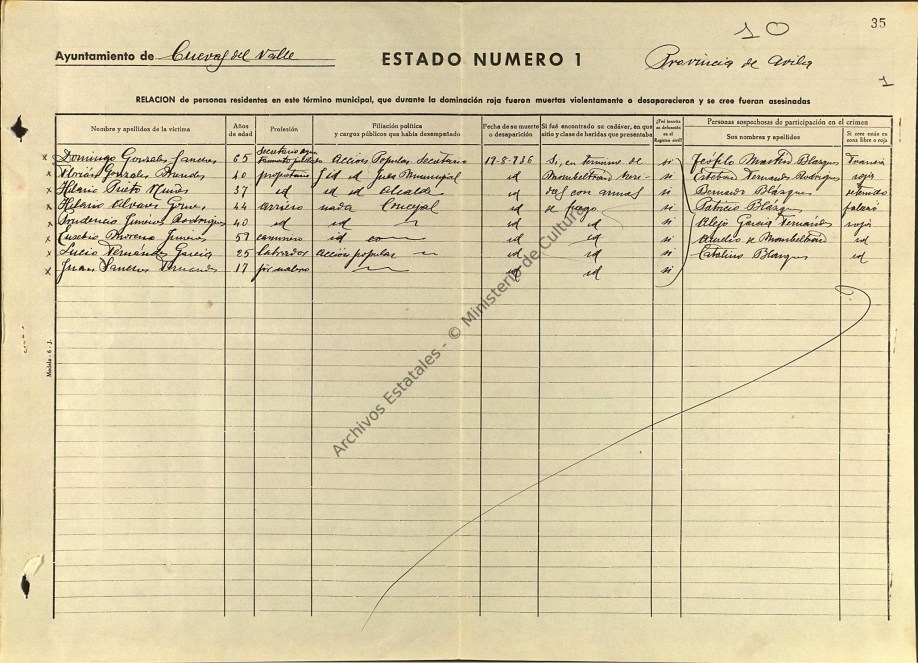 35
10
Ayuntamiento de Cuevas del Valle ESTADO NUMERO 1 Provincia de Avila
1
RELACION de personas residentes en este término municipal, que durante la dominación roja fueron muertas violentamente o desaparecieron y se cree fueran asesinadas
Nombre y apellidos de la víctima Años de edad Profesión Filiación política y cargos públicos que había desempeñado Fecha de su muerte o desaparición Si fué encontrado su cadáver, en qué sitio y clase de heridas que presentaba ¿Fué inscrita su defunción en el Registro civil? Personas sospechosas de participación en el crimen
Sus nombres y apellidos Si cree están en zona libre o roja
Domingo Gonzalez Sanchez 65 Secretario Acción Popular Secretario 17-8-936 Si, en termino de si Teofilo Martin Blazquez Francia
Gonzalez 40 propietario id id Juez Municipal id Mombeltran heri- si Esteban Fernandez Rodriguez roja
Hilario Prieto 37 id id id Alcalde id das con armas si Bernardo Blazquez
Hilario Alvarez 44 arriero nada Concejal id de fuego si Patricio Blazquez
Prudencio Jimenez Rodriguez 40 id id id id si Alejo Garcia Fernandez roja
Eusebio Moreno Jimenez 57 id id id si Aurelio de Mombeltran id
Lucio Fernández Garcia 25 labrador acción popular id id si Catalino Blazquez id
Juan Sanchez Fernandez 17 jornalero id id si
Modelo - 6 - J.
Archivos Estatales - © Ministerio de Cultura